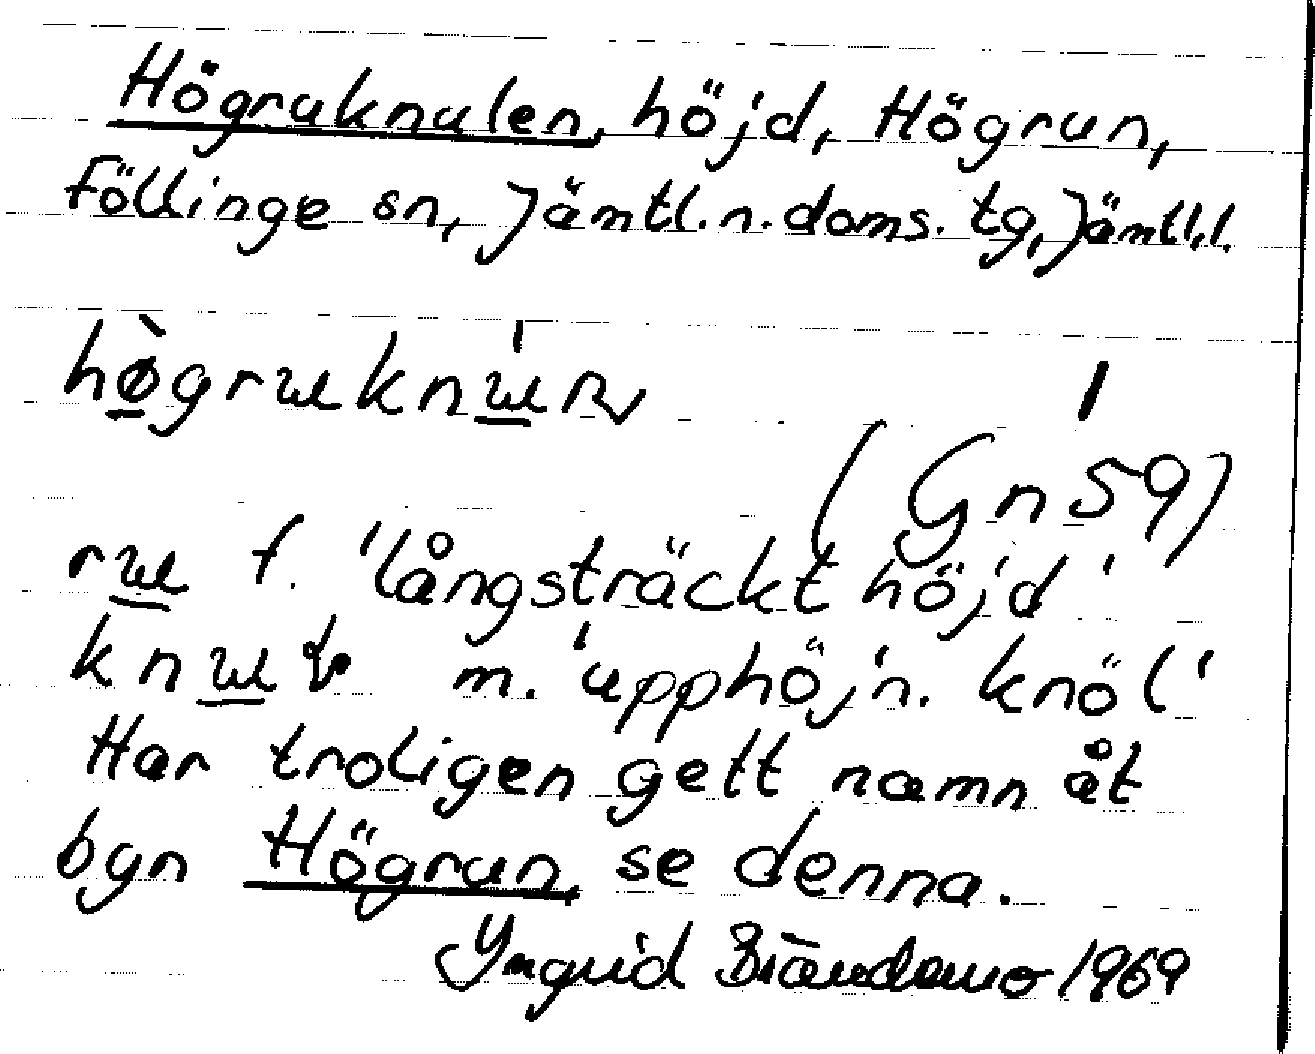 Högruknulen, höjd, Högrun,
Föllinge sn, Jämtl. n. doms. tg, Jämtl. l.
rɯ f. 'långsträckt höjd'
(Gn 59)
m. 'upphöjn. knöl'
Har troligen gett namn åt
byn Högrun, se denna.
Yngvid 1969